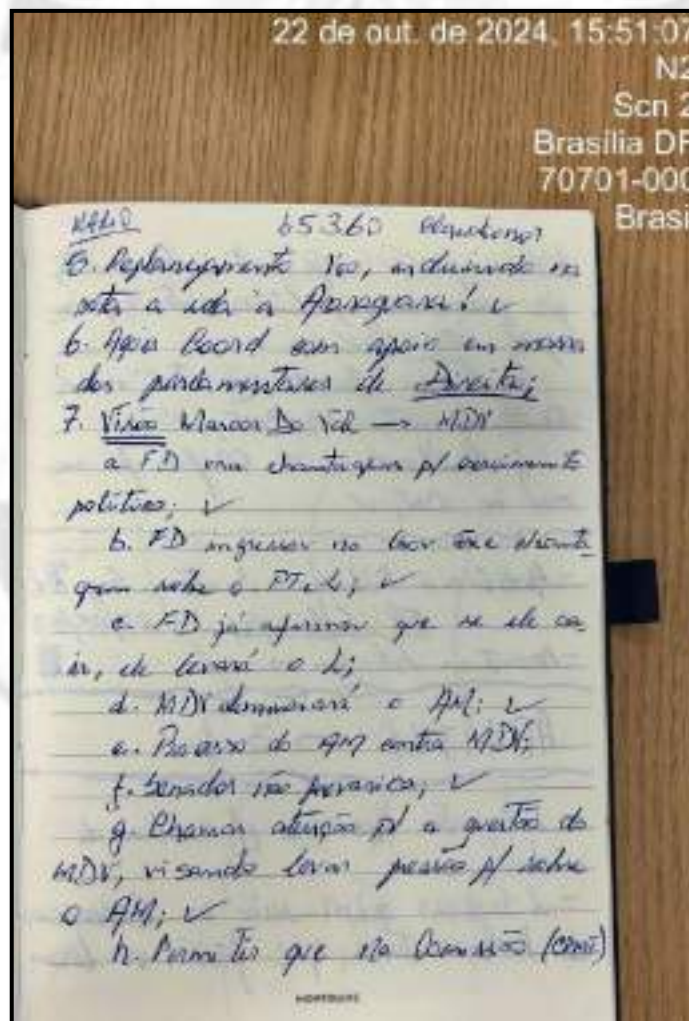 22 de out. de 2024, 15:51:07
N2
Scn 2
Brasília DF
70701-000
Brasi
65360
5. Replanejamento incluindo na
a ida a Araraquara! ✓
6. Ações Coord com apoio em massa
dos parlamentares de Direita;
7. Visão Marcos Do Val → MDV
a FD chantagem p/
político; ✓
b. FD ingressou no Gov
gem sobre o PT ✓
c. FD já afirmou que se ele ca-
ir, ele levará o L;
d. MDV o AM; ✓
e. Processo do AM contra MDV;
f. Senador não prevarica; ✓
g. Chamar atenção p/ a questão do
MDV, visando levar pressão p/ sobre
o AM; ✓
h. Permitir que na Comissão (CPMI)